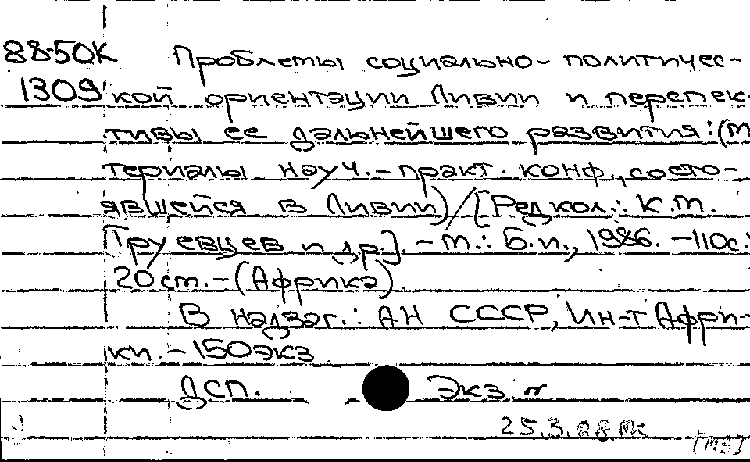 88-50К Проблемы социально-политичес-
1309 кой ориентации Ливии и перспек
тивы ее дальнейшего развития: (М
териалы науч.-практ. конф., состо-
явшейся в Ливии) / [Редкол.: К.М.
Труевцев и др.]. - М.: Б.и., 1986. - 110с.:
20 ст. - (Африка)
В надзаг.: АН СССР, Ин-т Афри-
ки. - 150 экз
ДСП. Экз. п
25.3.88